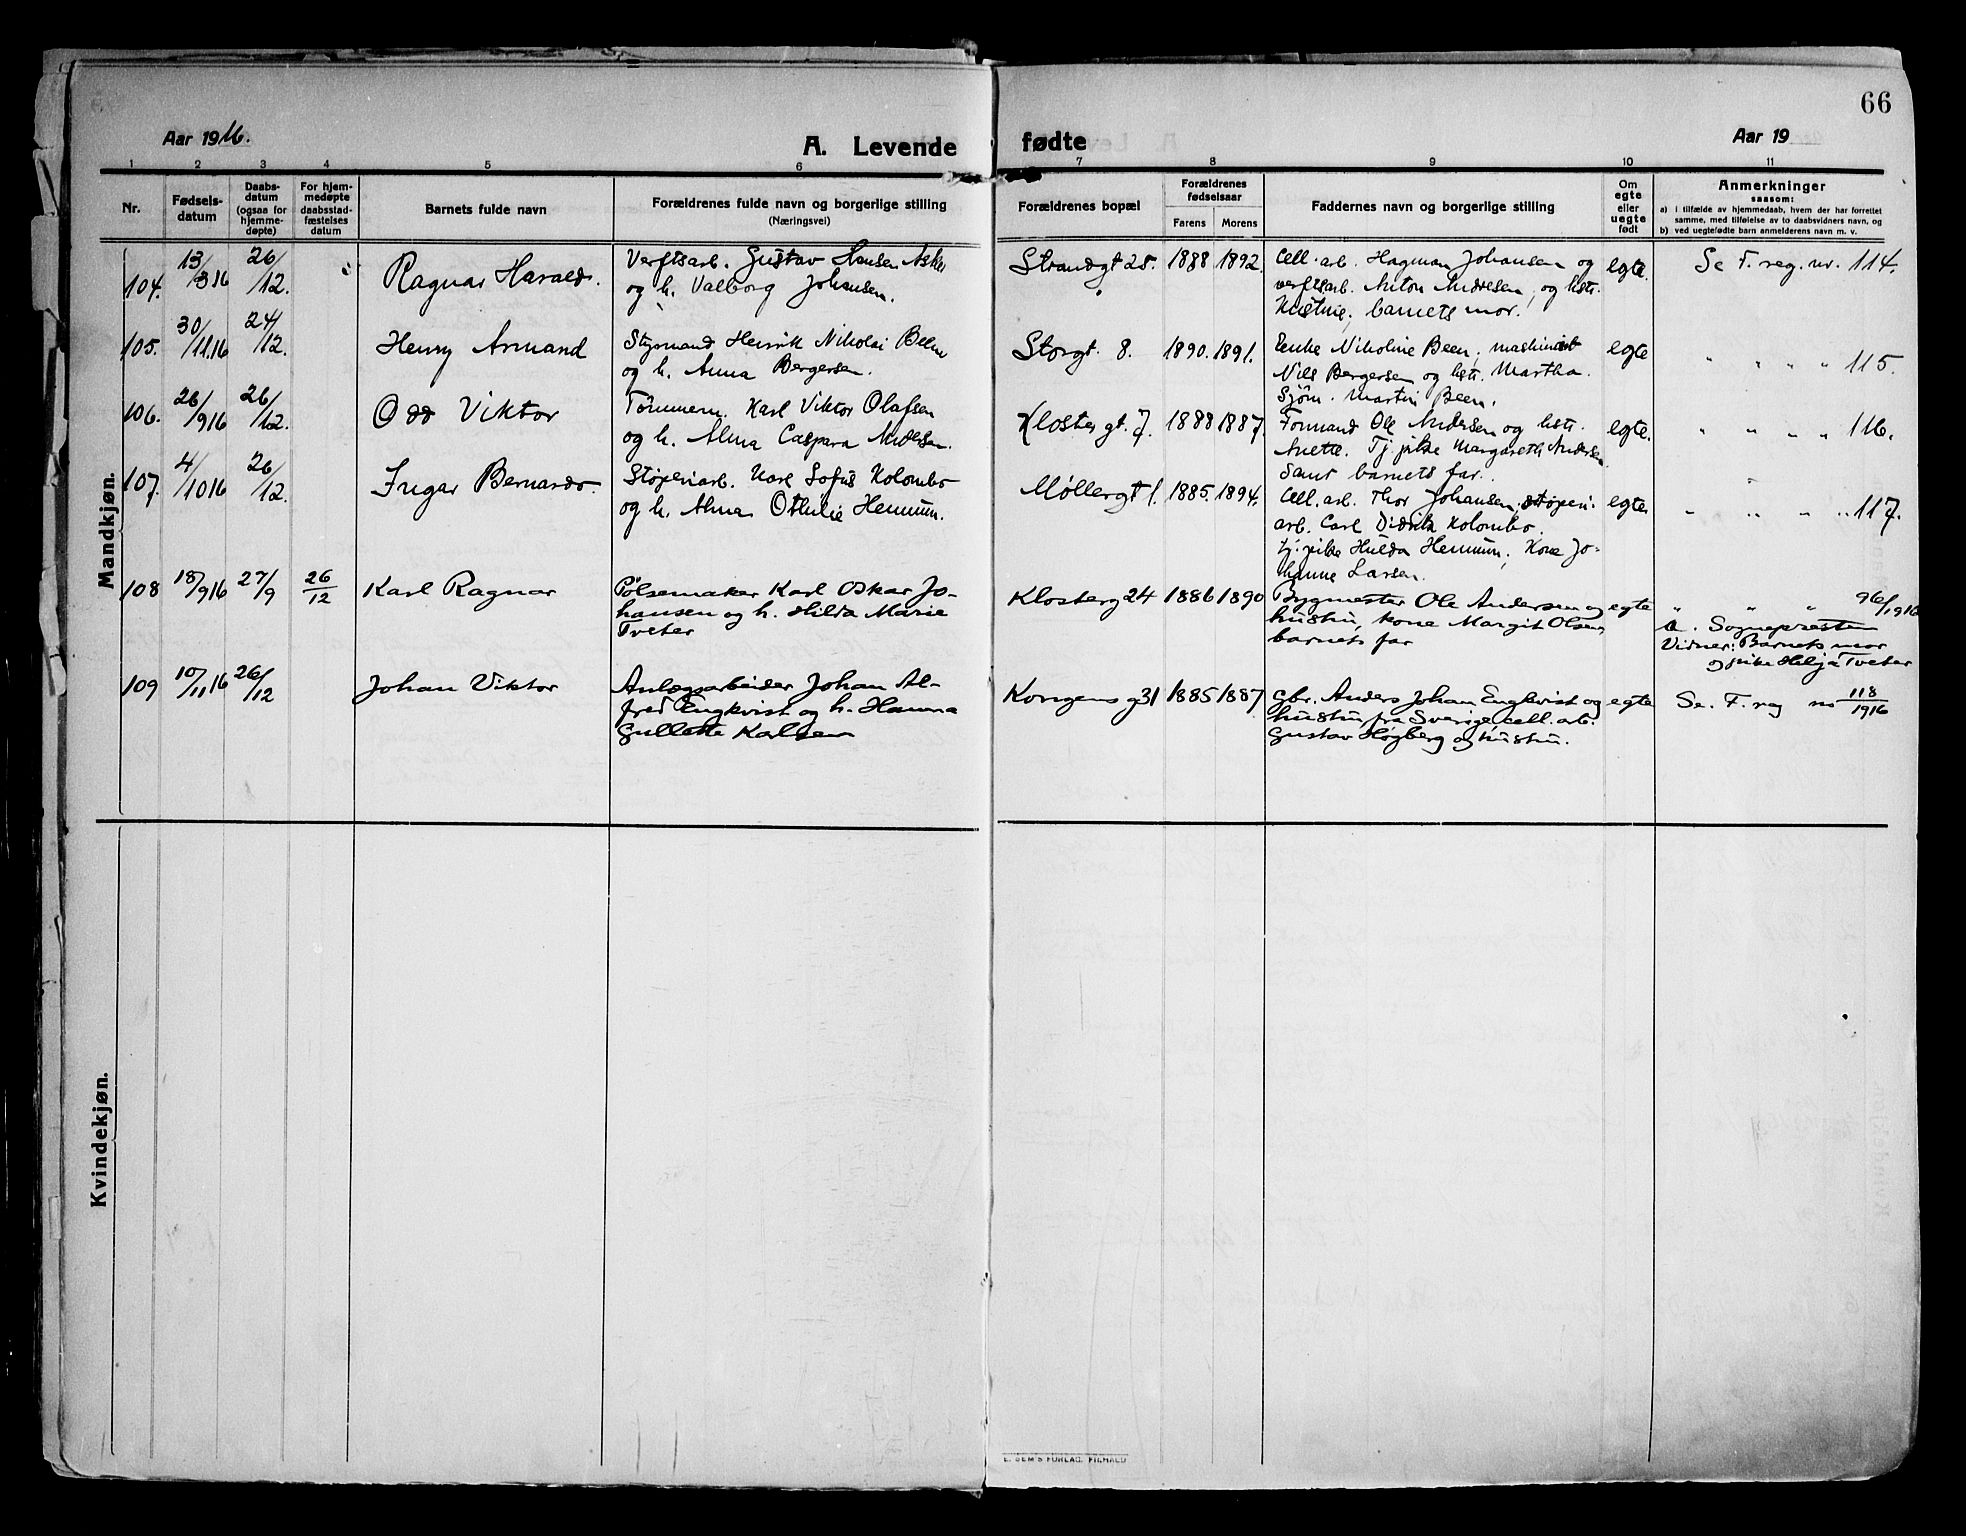 66
Aar 1916.
A. Levende fødte
Aar 19
1 2 3 4 5 6 7 8 9 10 11
Nr.
Fødsels-
datum
Daabs-
datum
(ogsaa for
hjemme-
døpte)
For hjem-
medøpte
daabsstad-
fæstelses
datum
Barnets fulde navn
Forældrenes fulde navn og borgerlige stilling
(Næringsvei)
Forældrenes bopæl
Forældrenes
fødselsaar
Farens Morens
Faddernes navn og borgerlige stilling
Om
egte
eller
uegte
født
Anmerkninger
saasom:
a) i tilfælde av hjemmedaab, hvem der har forrettet
samme, med tilføielse av to daabsvidners navn, og
b) ved uegtefødte barn anmelderens navn m. v.
Mandkjøn.
104. 13/3 16 26/12. Ragnar Harald.
Verftsarb. Gustav Hansen Asker
og h. Valborg Johansen.
Strandgt 25. 1888 1892.
Cell. arb. Hagman Johansen og
verftsarb. Anton Andresen, og hstr.
Kristine, barnets mor.
egte. Se F. reg. nr. 114.
105. 30/11 16 24/12. Henry Armand
Styrmand Henrik Nikolai Been
og h. Anna Bergersen.
Storgt. 8. 1890. 1891.
Enke Nikoline Been, maskinist
Nils Bergersen og hstr. Martha.
Sjøm. Martin Been.
egte " " " " 115.
106. 26/9 16 26/12. Odd Viktor
Tømmerm. Karl Viktor Olafsen
og h. Alma Caspara Andersen.
Klostergt. 7. 1888 1887.
Formand Ole Andersen og hstr.
Anette. Tj. pike Margareth Andersen
Samt barnets far.
egte. " " " " 116.
107. 4/10 16 26/12. Ingar Bernardo.
Støperiarb. Karl Sofus Kolombo
og h. Alma Othilie Hemmum.
Møllergt 1. 1885. 1894.
Cell. arb. Thor Johansen, støperi-
arb. Carl Didrik Kolombo.
tj. pike Hulda Hemmum, Kone Jo-
hanne Larsen.
egte " " " " 117.
108 18/9 16 27/9 26/12 Karl Ragnar
Pølsemaker Karl Oskar Jo-
hansen og h. Hilda Marie
Tveter
Klosterg 24 1886 1890
Bygmester Ole Andersen og
hustru, kone Margit Olsen,
barnets far
egte " " " 96/1916
a. Sognepresten
Vidner: Barnets mor
og pike Helga Tveter
109 10/11 16 26/12 Johan Viktor
Anlægsarbeider Johan Al-
fred Engkvist og h. Hanna
Gullette Karlsen
Kongens g 31 1885 1887
Gbr. Anders Johan Engkvist og
hustru fra Sverige, cell. arb.
Gustav Høgberg og hustru.
egte Se. F. reg no 118/1916
Kvindekjøn.
E. SEM'S FORLAG, FR.HALD